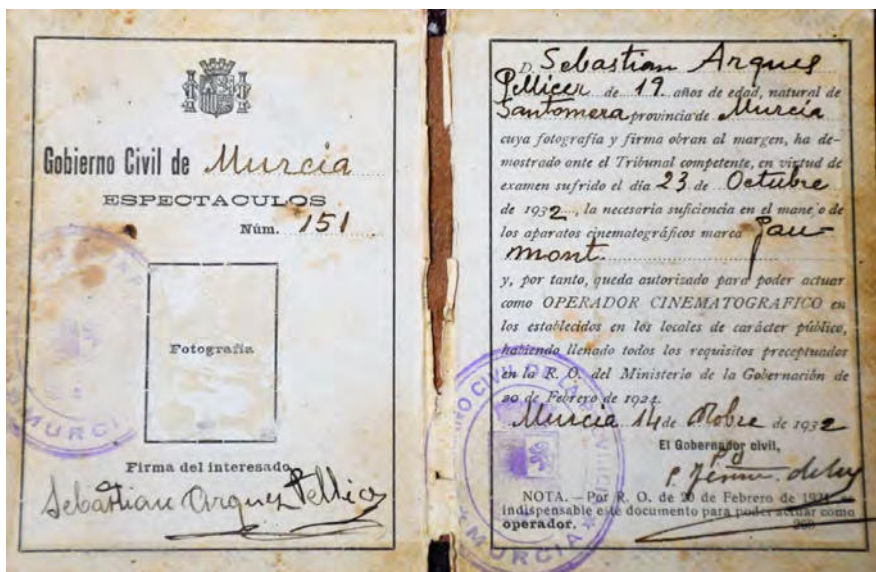 Gobierno Civil de Murcia
ESPECTACULOS
Núm. 151
Fotografía
Firma del interesado,
Sebastian Arques Pellicer
MURCIA
D. Sebastian Arques
Pellicer de 19 años de edad, natural de
Santomera provincia de Murcia
cuya fotografía y firma obran al margen, ha de-
mostrado ante el Tribunal competente, en virtud de
examen sufrido el día 23 de Octubre
de 1932, la necesaria suficiencia en el manejo de
los aparatos cinematográficos marca Gau-
mont.
y, por tanto, queda autorizado para poder actuar
como OPERADOR CINEMATOGRAFICO en
los establecidos en los locales de carácter público,
habiendo llenado todos los requisitos preceptuados
en la R. O. del Ministerio de la Gobernación de
20 de Febrero de 1924.
Murcia 14 de de 1932
El Gobernador civil,
NOTA.—Por R. O. de 20 de Febrero de es
indispensable este documento para poder actuar como
operador.
MURCIA